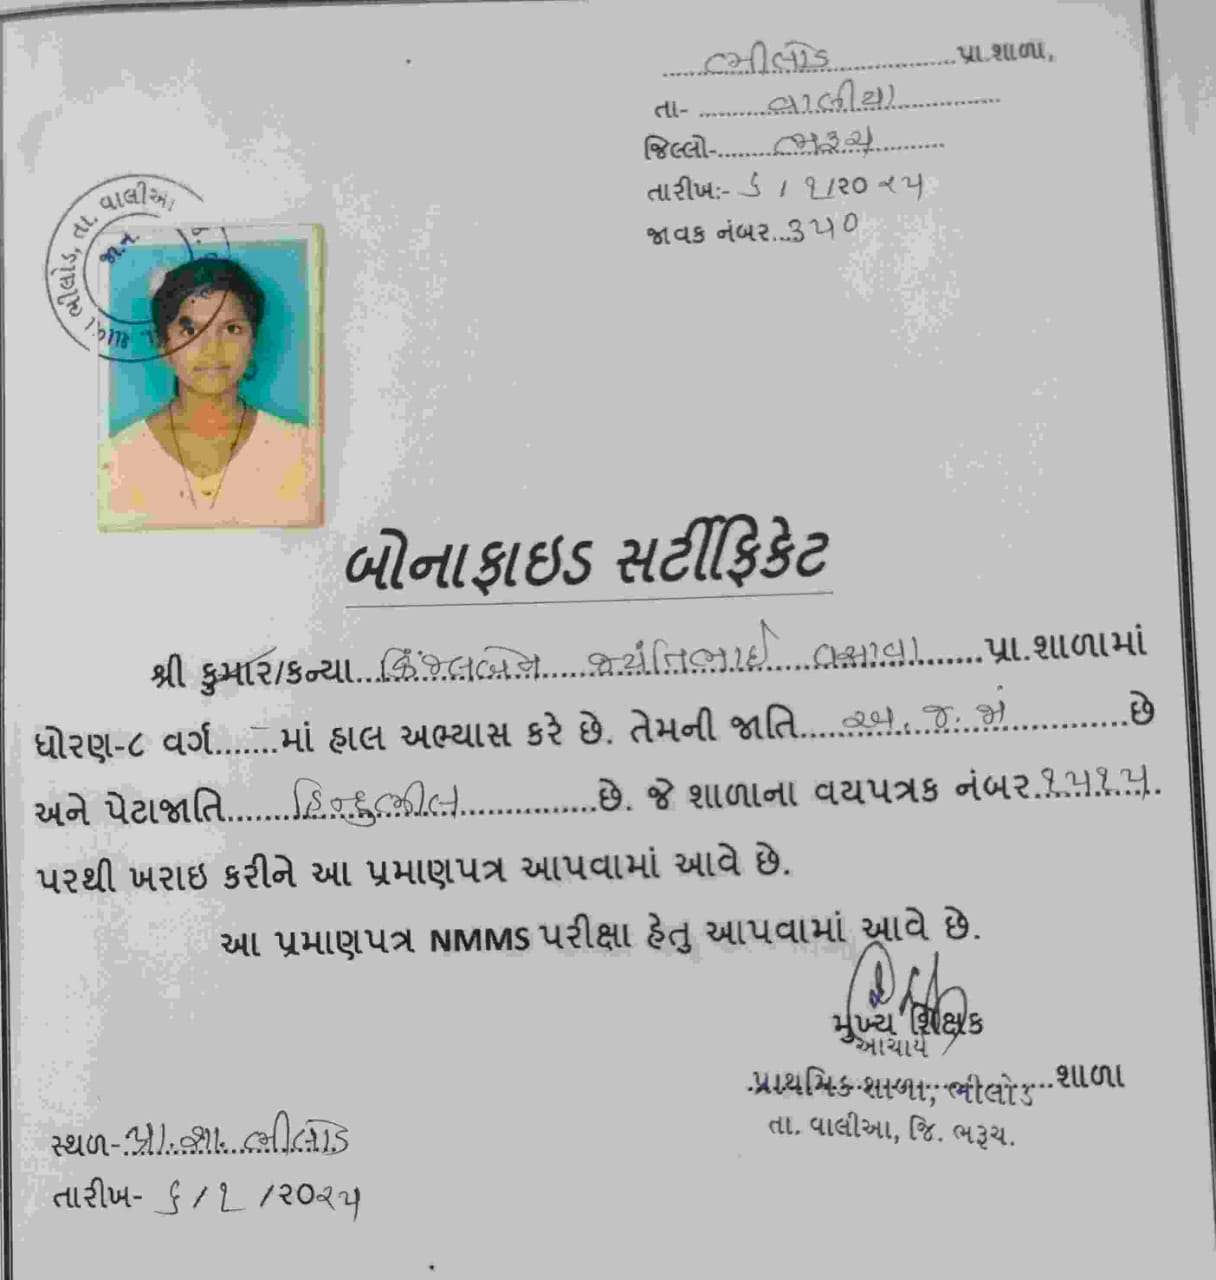 ભીલોડ પ્રા.શાળા,
તા- વાલીયા
જિલ્લો- ભરૂચ
તારીખ:- ૬ / ૧ /૨૦ ૨૫
જાવક નંબર...૩૫૦
ભીલોડ, તા. વાલીઆ
જા.ન.
બોનાફાઇડ સર્ટીફિકેટ
શ્રી કુમાર/કન્યા...કિંજલબેન જયંતિભાઈ વસાવા......પ્રા.શાળામાં
ધોરણ-૮ વર્ગ.......માં હાલ અભ્યાસ કરે છે. તેમની જાતિ....અ.જ.જા............છે
અને પેટાજાતિ.......હિન્દુભીલ..............છે. જે શાળાના વયપત્રક નંબર.૧૫૧૫.
પરથી ખરાઇ કરીને આ પ્રમાણપત્ર આપવામાં આવે છે.
આ પ્રમાણપત્ર NMMS પરીક્ષા હેતુ આપવામાં આવે છે.
મુખ્ય શિક્ષક
આચાર્ય
પ્રાથમિક શાળા, ભીલોડ શાળા
તા. વાલીઆ, જિ. ભરૂચ.
સ્થળ-પ્રા.શા. ભીલોડ
તારીખ- ૬ / ૧ /૨૦૨૫